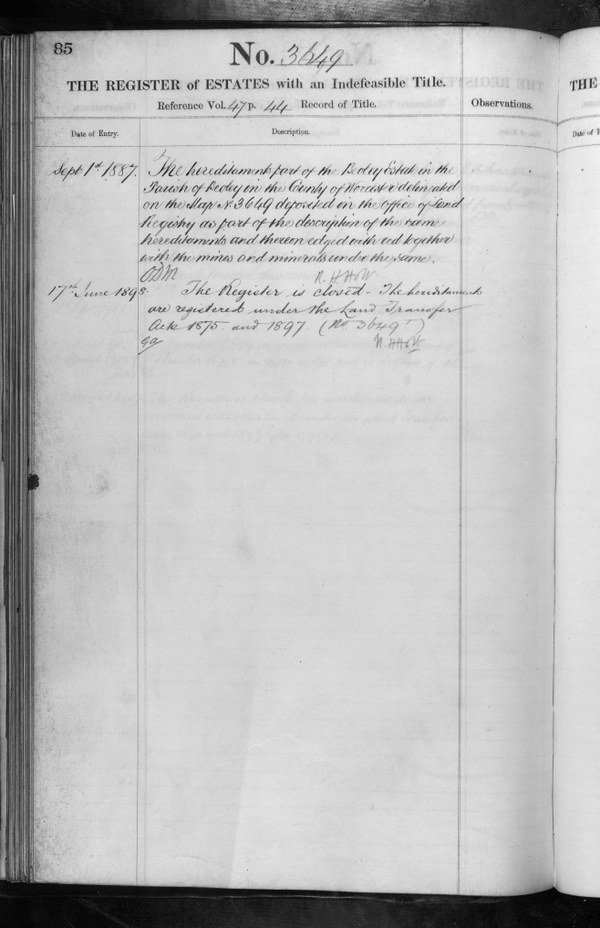 85
No. 3649
THE REGISTER of ESTATES with an Indefeasible Title.
Reference Vol. 47 p. 44 Record of Title.
Observations.
Date of Entry.
Description.
Sept 1st 1887. The hereditaments part of the Beoley Estate in the
Parish of Beoley in the County of Worcester delineated
on the Map No 3649 deposited in the Office of Land
Registry as part of the description of the same
hereditaments and thereon edged with red together
with the mines and minerals under the same.
17th June 1898. The Register is closed - The hereditaments
are registered under the Land Transfer
Acts 1875 and 1897 (No 3649)
THE